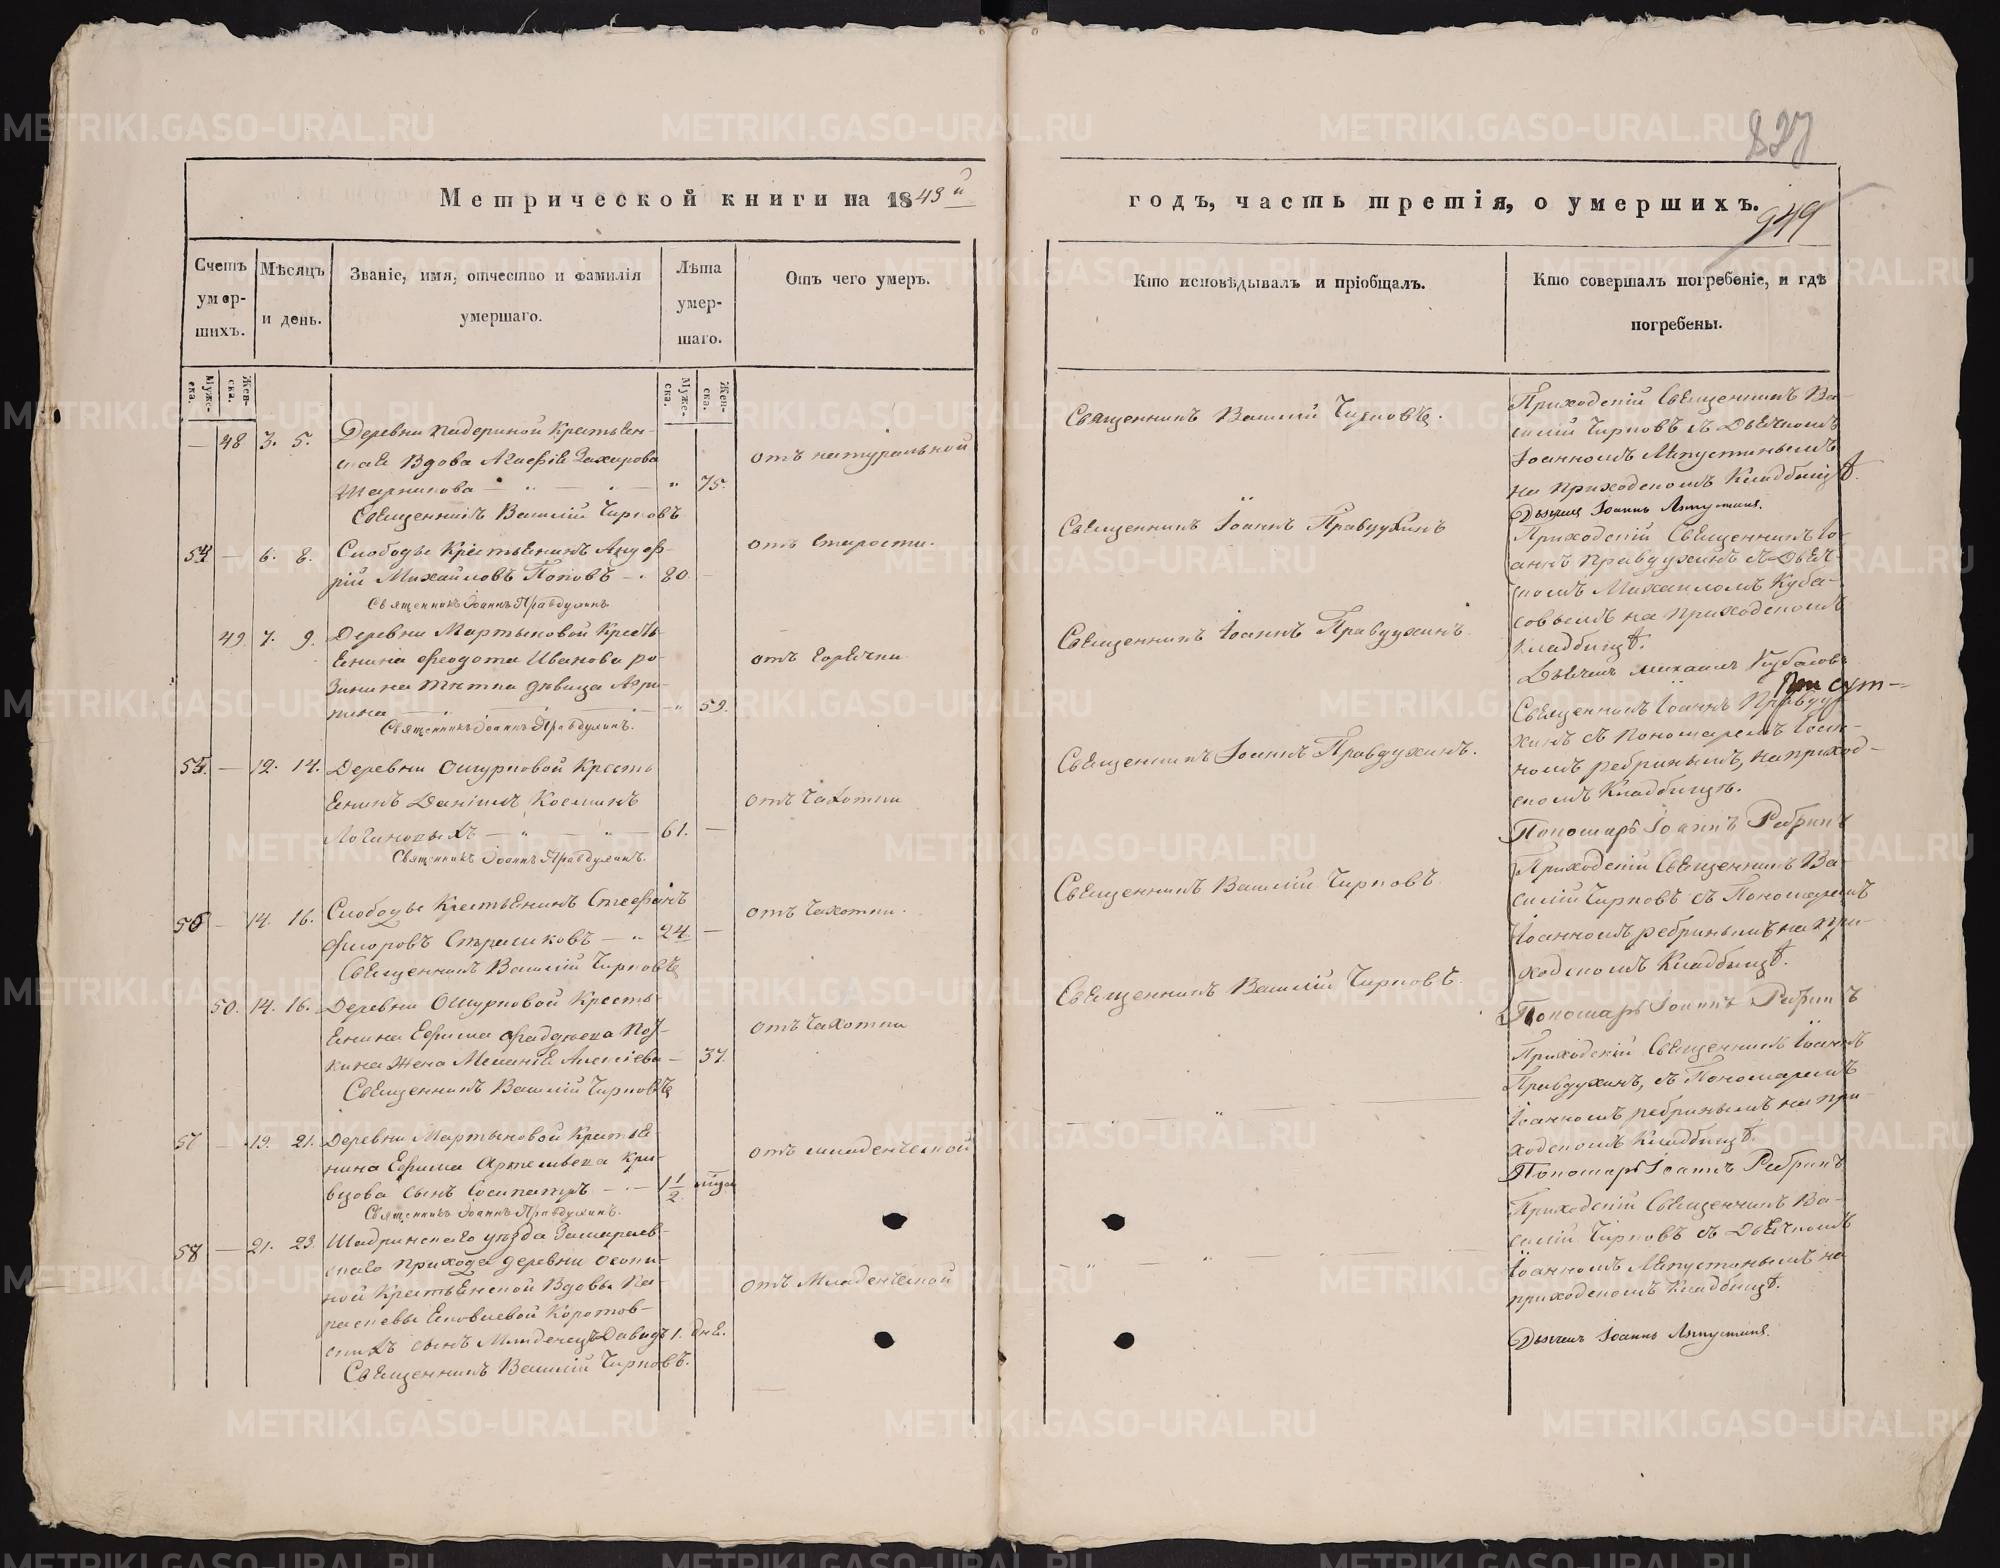 827
Метрической книги на 1843й
годъ, часть третія, о умершихъ.
949
Счетъ умер-шихъ.
Мѣсяцъ и день.
Званіе, имя, отчество и фамилія умершаго.
Лѣта умер-шаго.
Отъ чего умеръ.
Кто исповѣдывалъ и пріобщалъ.
Кто совершалъ погребеніе, и гдѣ погребены.
Муже-ска.
Жен-ска.
Муже-ска.
Жен-ска.
— 48 3. 5.
Деревни Кадериной Крестьен-
ская Вдова Агафія Захарова
75.
Священникъ Василій Чирковъ
отъ натуральной
Священникъ Василій Чирковъ.
Приходскій Священникъ Ва-
силій Чирковъ съ Дьячкомъ
Іоанномъ Ляпустинымъ
на приходскомъ Кладбищѣ.
Дьячекъ Іоаннъ Ляпустинъ.
54 — 6. 8.
Слободы Крестьенинъ
Михайловъ Поповъ — 80. —
Священникъ Іоаннъ Правдухинъ
отъ Старости.
Священникъ Іоаннъ Правдухинъ
Приходскій Священникъ Іо-
аннъ Правдухинъ съ Дьяч-
комъ Михаиломъ Куба-
совымъ на приходскомъ
Кладбищѣ.
Дьячекъ Михаилъ Кубасовъ
49. 7. 9.
Деревни Мартыновой Кресть-
енина Феодота Иванова
тѣтка дѣвица Агри-
пина — 59.
Священникъ Іоаннъ Правдухинъ.
отъ Горячки
Священникъ Іоаннъ Правдухинъ
Священникъ Іоаннъ Правду-
хинъ съ Пономаремъ Іоан-
номъ Ребринымъ, на приход-
скомъ Кладбищѣ.
Пономарь Іоаннъ Ребринъ
55. — 12. 14.
Деревни Ошурковой Кресть
енинъ Даніилъ Косминъ
Логиновыхъ — 61. —
Священникъ Іоаннъ Правдухинъ.
отъ Чахотки
Священникъ Іоаннъ Правдухинъ.
Приходскій Священникъ Ва-
силій Чирковъ съ Пономаремъ
Іоанномъ Ребринымъ на при-
ходскомъ Кладбищѣ.
Пономарь Іоаннъ Ребринъ
56 — 14. 16.
Слободы Крестьенинъ Стефанъ
Стрѣлковъ — 24. —
Священникъ Василій Чирковъ
отъ Чахотки.
Священникъ Василій Чирковъ
50. 14. 16.
Деревни Ошурковой Кресть-
енина Ефима
жена Меланія Алексіева — 37.
Священникъ Василій Чирковъ
отъ Чахотки
Священникъ Василій Чирковъ.
Приходскій Священникъ Іоаннъ
Правдухинъ, съ Пономаремъ
Іоанномъ Ребринымъ на при-
ходскомъ Кладбищѣ.
Пономарь Іоаннъ Ребринъ
57 — 19. 21.
Деревни Мартыновой Крестье-
нина Ефима Артемьева Кри-
вцова сынъ Сосипатръ — 1 1/2
Священникъ Іоаннъ Правдухинъ.
отъ младенческой
Приходскій Священникъ Ва-
силій Чирковъ съ Дьячкомъ
Іоанномъ Ляпустинымъ на
приходскомъ Кладбищѣ.
Дьячекъ Іоаннъ Ляпустинъ.
58 — 21. 23.
Шадринскаго уѣзда Замараев-
скаго прихода деревни Осоки-
ной Крестьенской Вдовы Па-
расковьи
сынъ Младенецъ Давидъ 1. дня.
Священникъ Василій Чирковъ.
отъ Младенческой